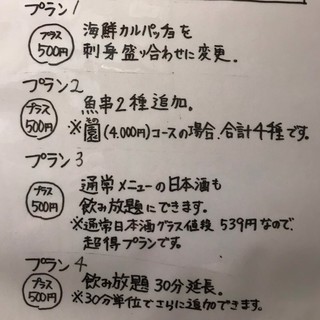 プラン1
プラス500円
海鮮カルパッチョを
刺身盛り合わせに変更。
プラン2
プラス500円
魚串2種追加。
※園(4,000円)コースの場合、合計4種です。
プラン3
プラス500円
通常メニューの日本酒も
飲み放題にできます。
※通常日本酒グラス値段 539円なので、
超得プランです。
プラン4
プラス500円
飲み放題 30分延長。
※30分単位でさらに追加できます。